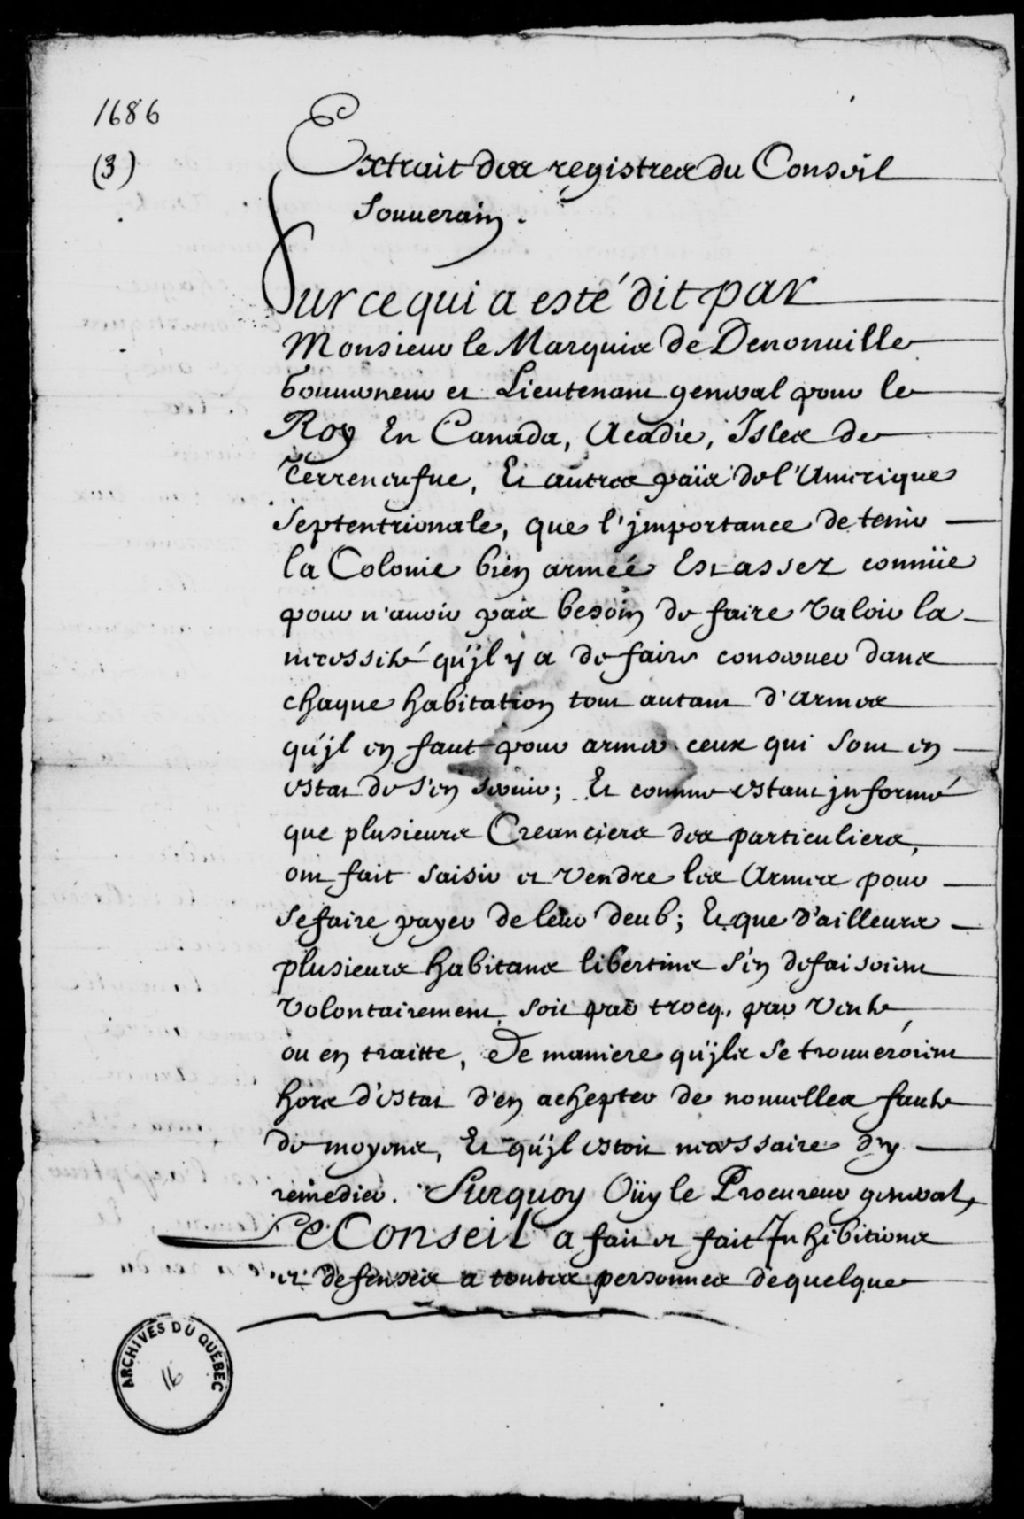 1686
(3)
Extrait des registres du Conseil
Souuerain.
Sur ce qui a esté dit par
Monsieur le Marquis de Denonuille
Gouuerneur et Lieutenant general pour le
Roy En Canada, Acadie, Isles de
Terreneufue, Et autres païs de l'Amerique
Septentrionale, que l'jmportance de tenir
la Colonie bien armée Est assez connüe
pour n'auoir pas besoin de faire Valoir la
necessité qu'jl y a de faire conseruer dans
chaque habitation tout autant d'Armes
qu'jl en faut pour armer ceux qui sont en
estat de s'en seruir; Et comme estant jnformé
que plusieurs Creanciers des particuliers,
ont fait saisir et Vendre les Armes pour
se faire payer de leur deub; Et que d'ailleurs
plusieurs habitans libertins s'en defaisoient
Volontairement, soit par trocq, par Vente
ou en traitte, De maniere qu'jls se trouueroient
hors d'estat d'en achepter de nouuelles faute
de moyens, Et qu'jl estoit necessaire d'y
remedier. Surquoy Oüy le Procureur general,
Le Conseil a fait et fait Inhibitions
et defenses a toutes personnes de quelque
ARCHIVES DU QUÉBEC
16